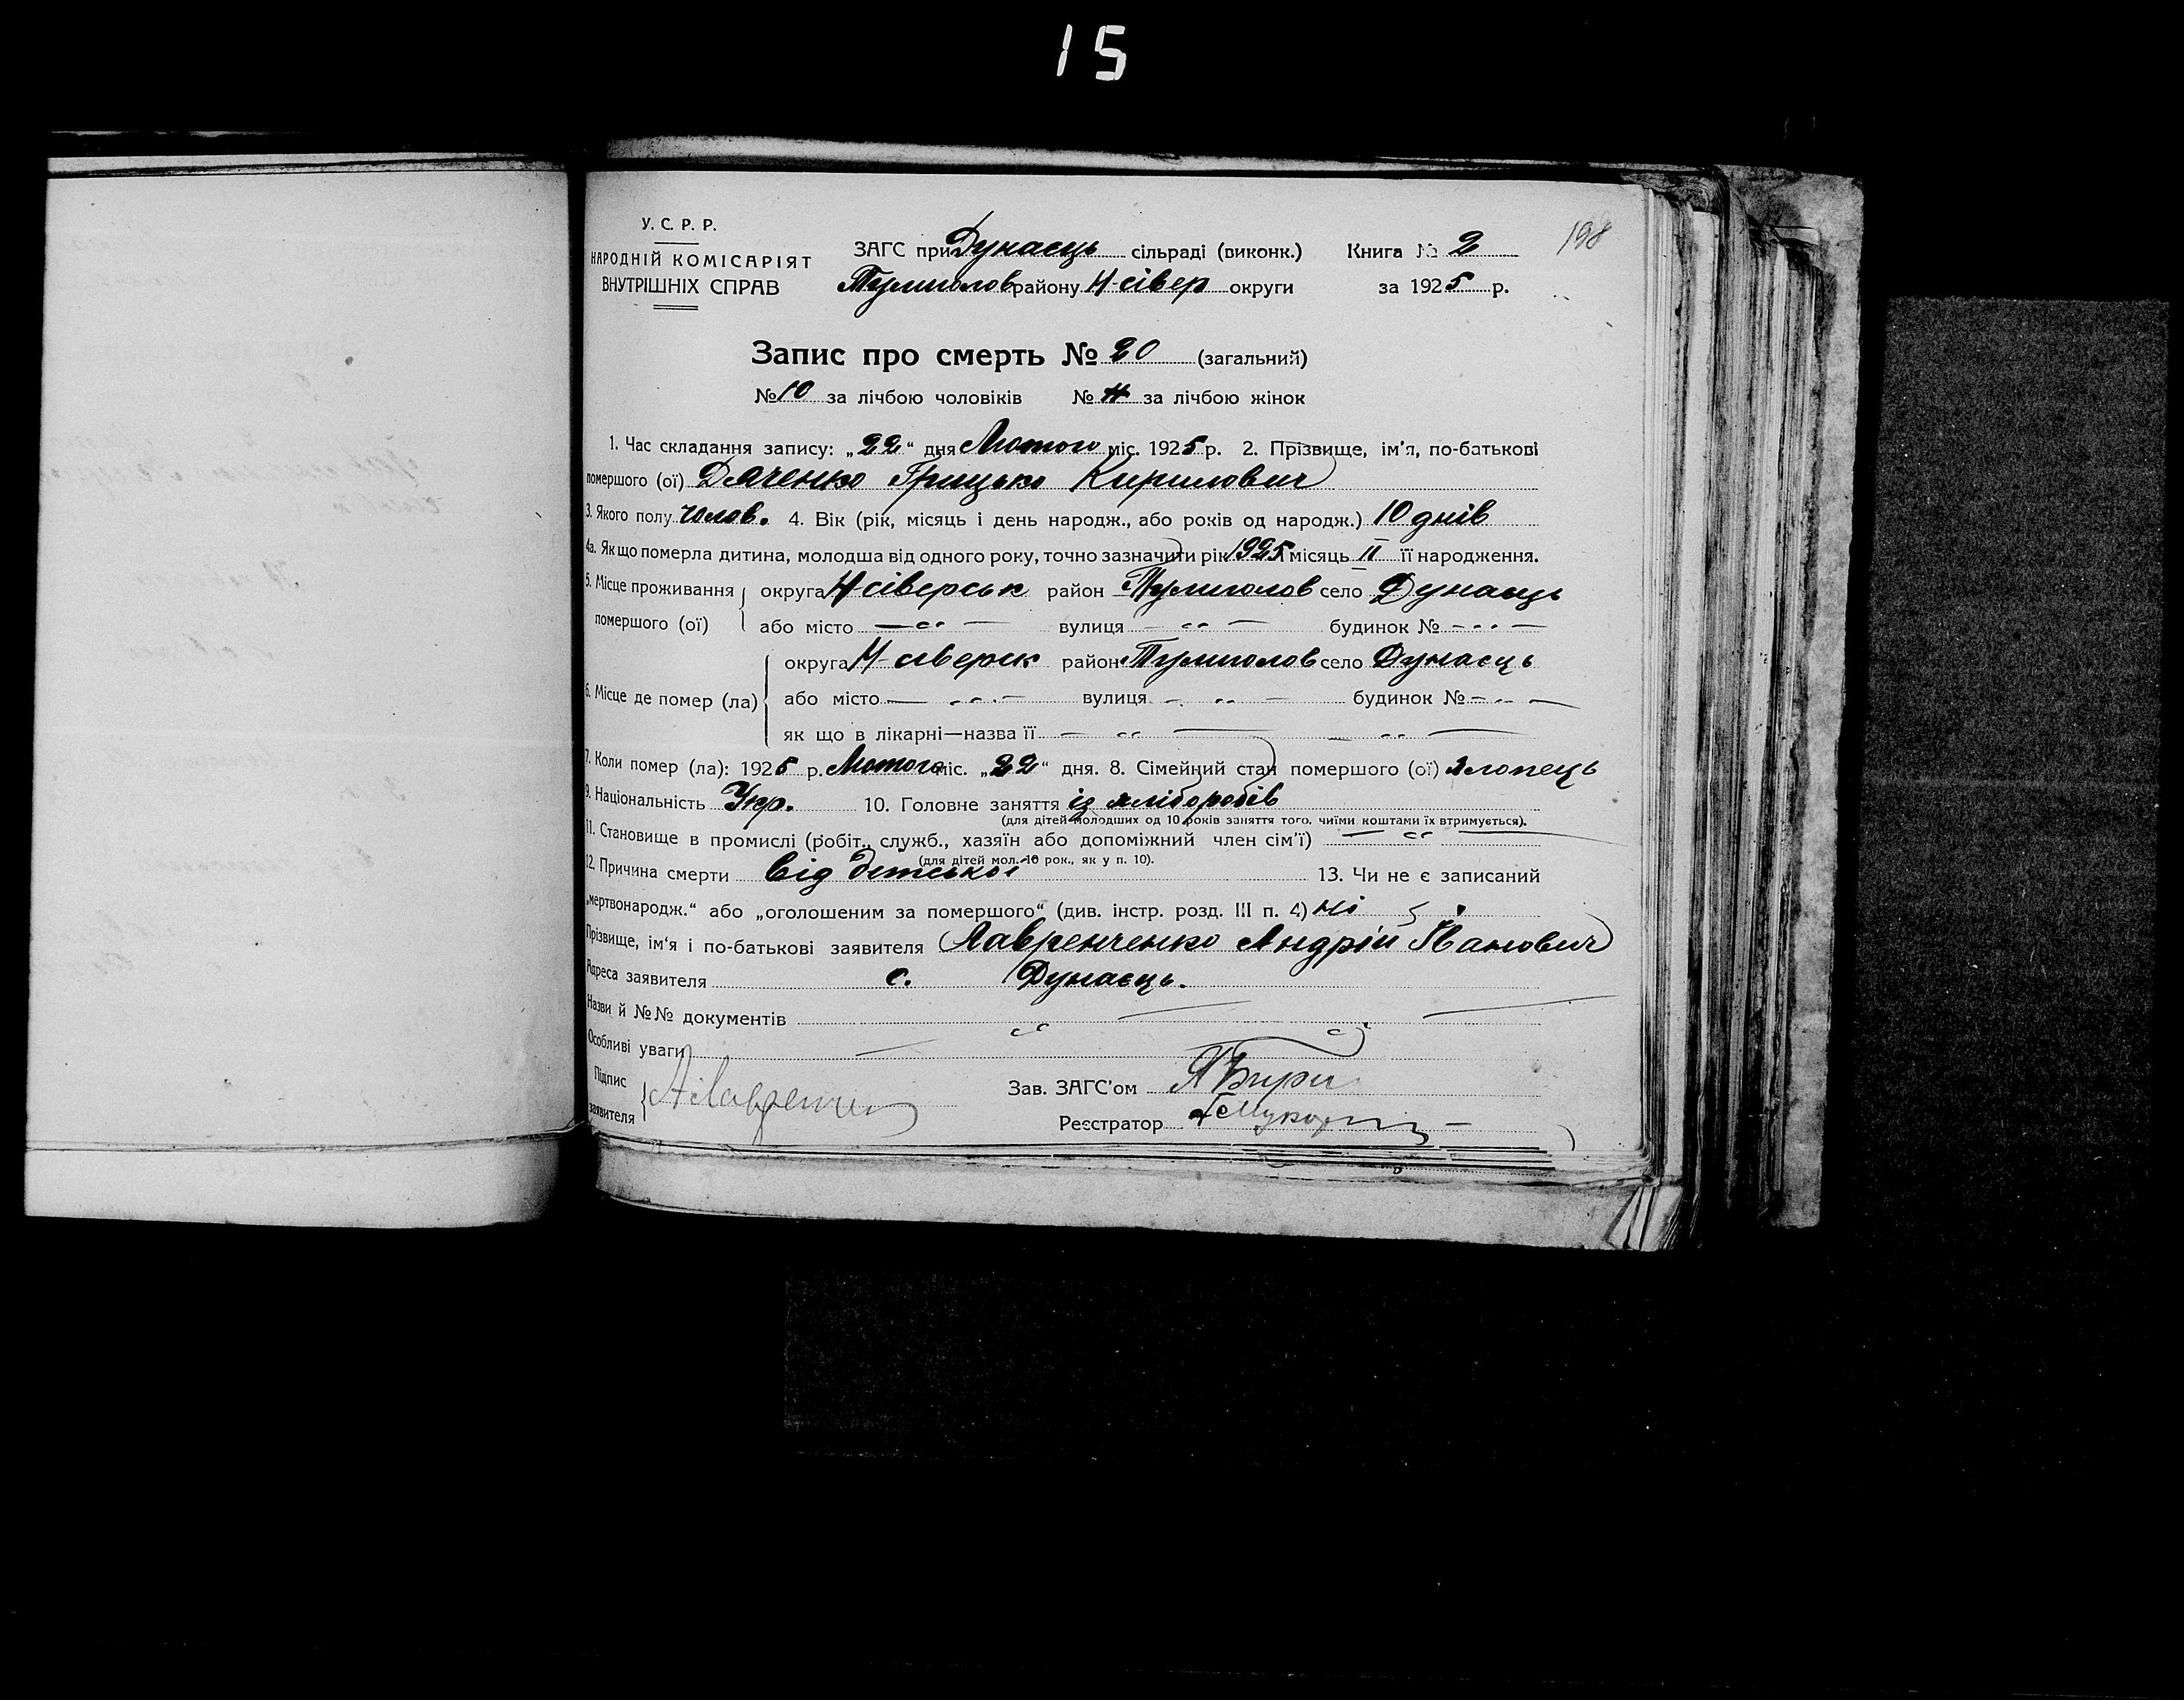 15
198
У. С. Р. Р.
НАРОДНІЙ КОМІСАРІЯТ
ВНУТРІШНІХ СПРАВ
ЗАГС при Дунаєць сільраді (виконк.) Книга № 2
району Н-сівер округи за 1925 р.
Запис про смерть № 20 (загальний)
№ 10 за лічбою чоловіків № за лічбою жінок
1. Час складання запису: „22“ дня Лютого міс. 1925 р. 2. Прізвище, ім'я, по-батькові
помершого (ої) Дяченко Грицько Кирилович
3. Якого полу чолов. 4. Вік (рік, місяць і день народж., або років од народж.) 10 днів
4а. Якщо померла дитина, молодша від одного року, точно зазначити рік 1925 місяць II її народження.
5. Місце проживання округа Н-сіверськ район село Дунаєць
помершого (ої) або місто — „ — вулиця — „ — будинок № - „ —
округа район село Дунаєць
6. Місце де помер (ла) або місто — „ — вулиця — „ — будинок № - „ —
як що в лікарні—назва її — „ — — „ —
7. Коли помер (ла): 1925 р. Лютого міс. „22“ дня. 8. Сімейний стан помершого (ої) хлопець
9. Національність Укр. 10. Головне заняття із хліборобів
(для дітей молодших од 10 років заняття того, чиїми коштами їх втримується).
11. Становище в промислі (робіт., служб., хазяїн або допоміжний член сім'ї) — „ —
(для дітей мол. 10 рок., як у п. 10).
12. Причина смерти від дитської 13. Чи не є записаний
„мертвонародж.“ або „оголошеним за помершого“ (див. інстр. розд. III п. 4) Ні
Прізвище, ім'я і по-батькові заявителя Лавренченко Андрій Іванович
Адреса заявителя с. Дунаєць.
Назви й №№ документів
Особливі уваги
Підпис
заявителя
Зав. ЗАГС'ом
Реєстратор